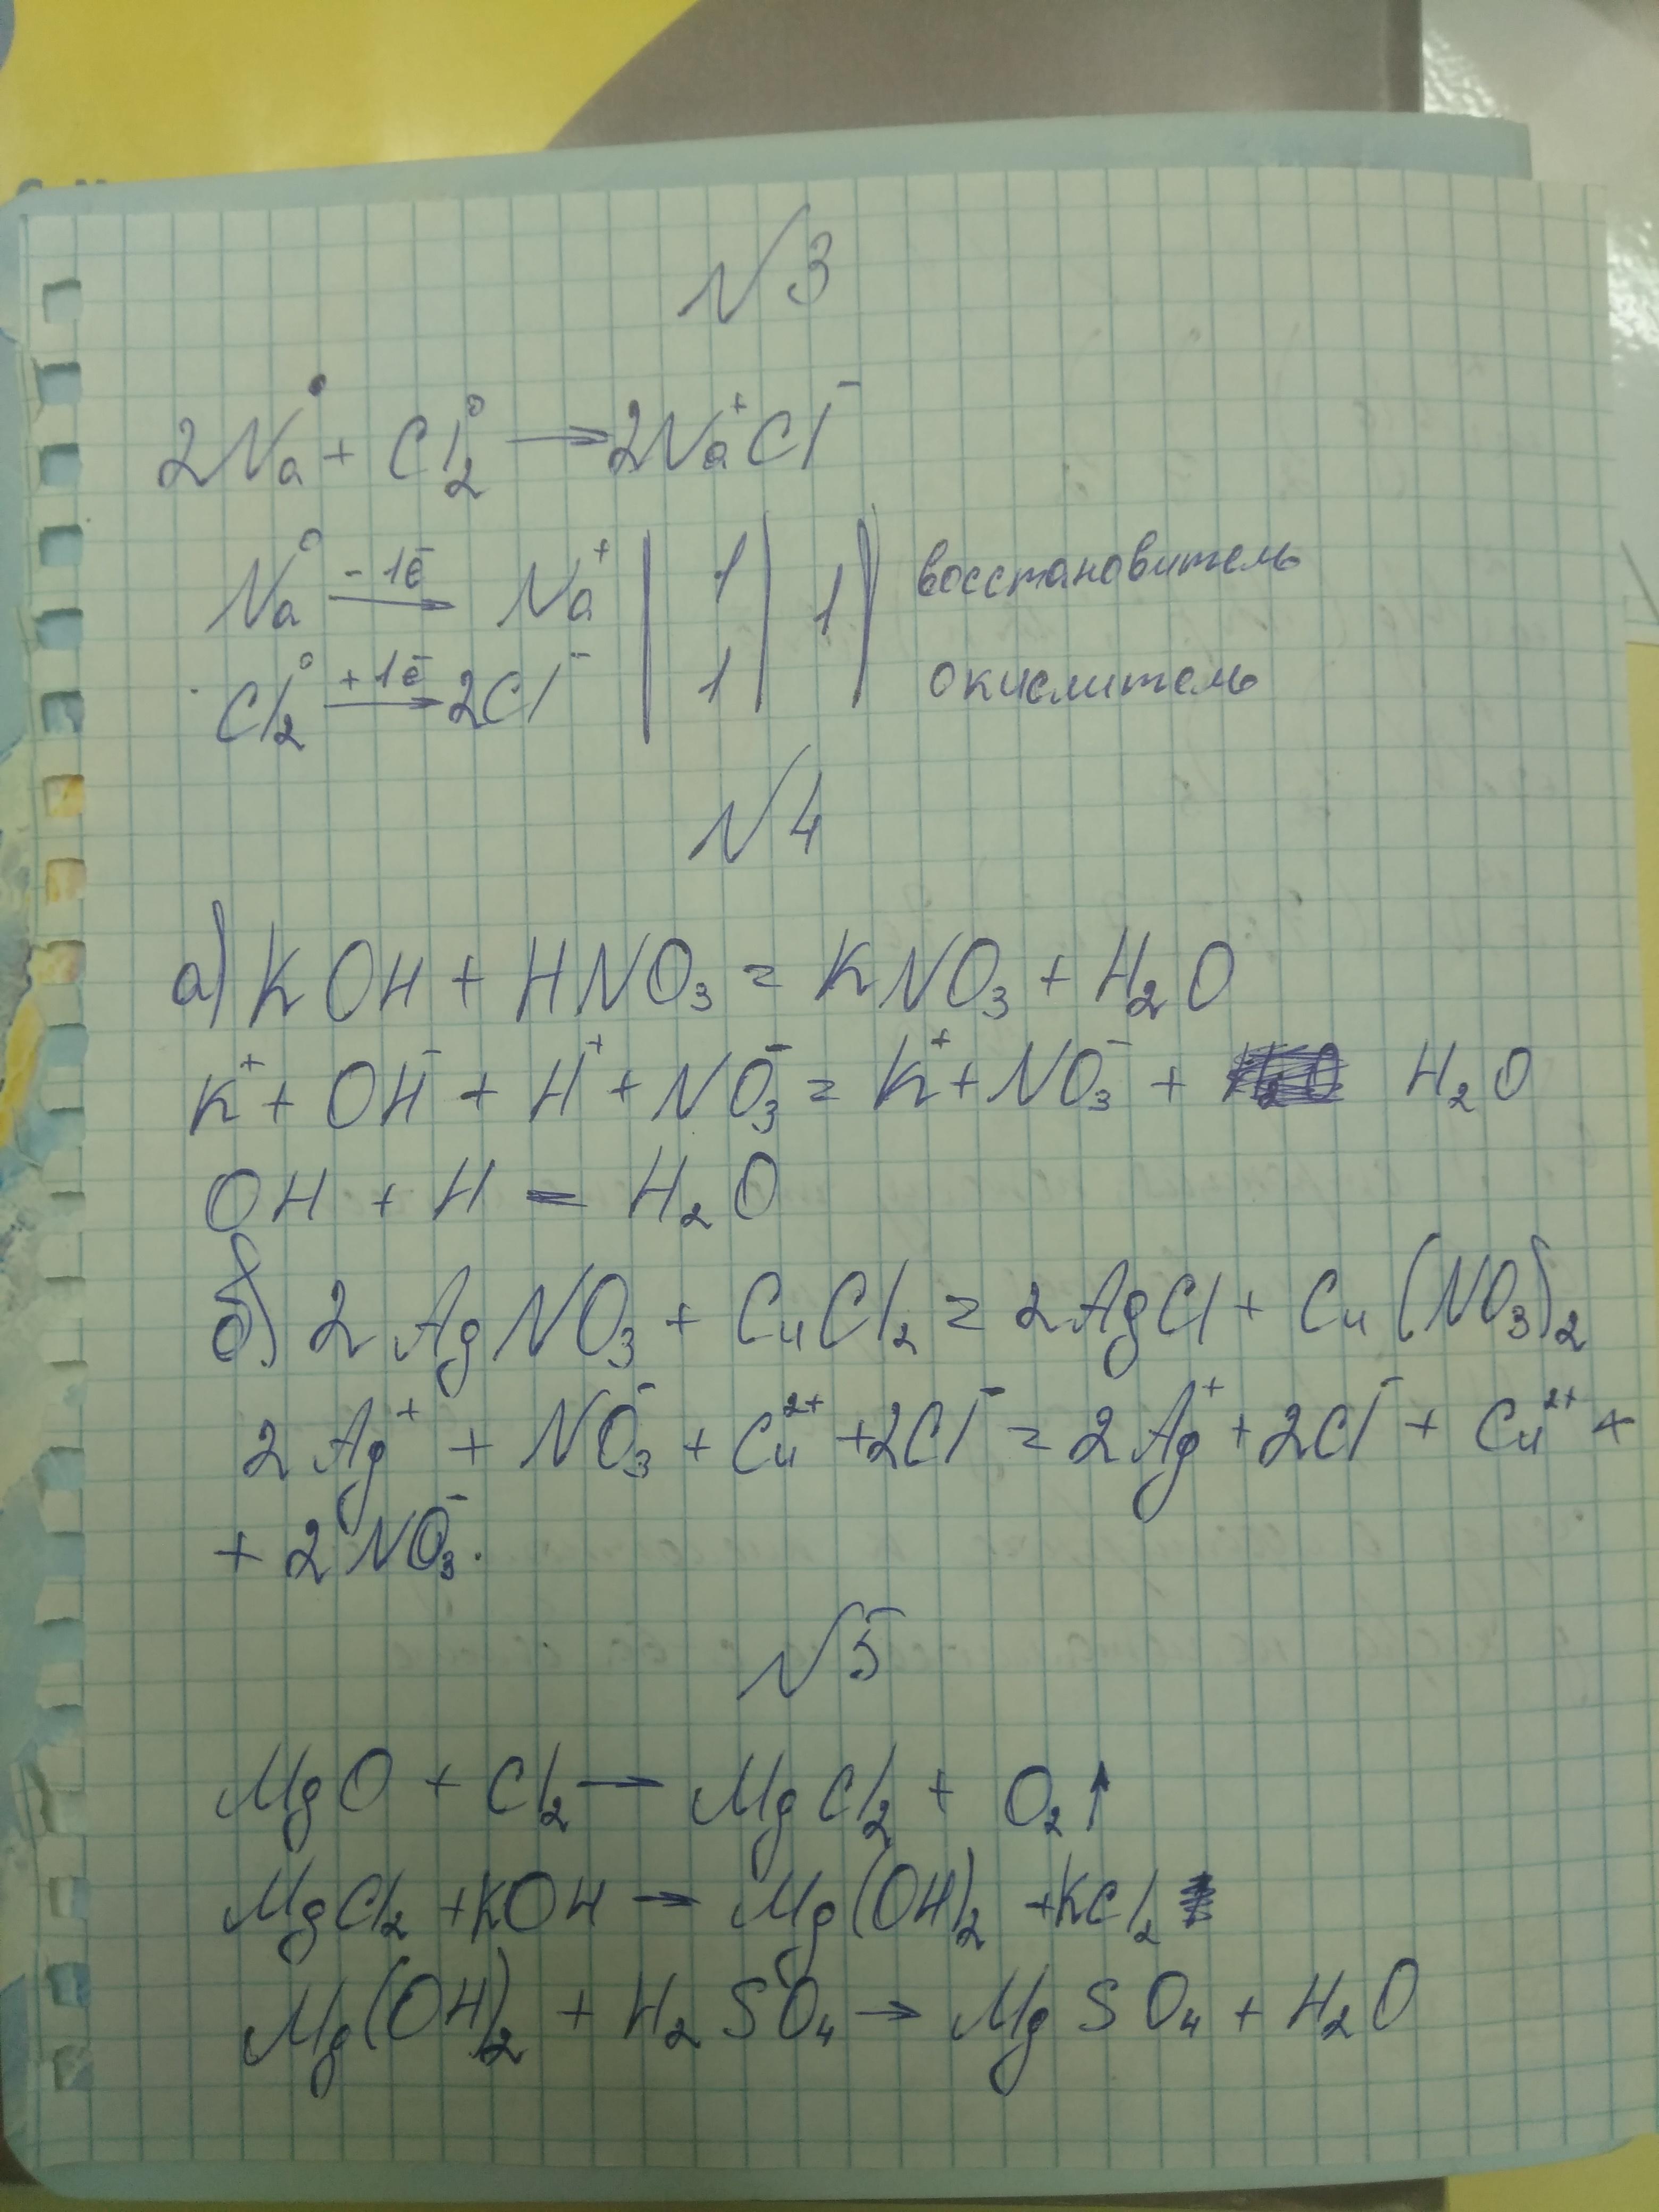 №3
2Na⁰ + Cl₂⁰ → 2Na⁺Cl⁻
Na⁰ -1ē→ Na⁺ | 1 | 1 | восстановитель
Cl₂⁰ +1ē→ 2Cl⁻ | 1 | окислитель
№4
а) KOH + HNO₃ = KNO₃ + H₂O
K⁺ + OH⁻ + H⁺ + NO₃⁻ = K⁺ + NO₃⁻ + H₂O
OH + H = H₂O
б) 2AgNO₃ + CuCl₂ = 2AgCl + Cu(NO₃)₂
2Ag⁺ + NO₃⁻ + Cu²⁺ + 2Cl⁻ = 2Ag⁺ + 2Cl⁻ + Cu²⁺ +
+ 2NO₃⁻.
№5
MgO + Cl₂ → MgCl₂ + O₂↑
MgCl₂ + KOH → Mg(OH)₂ + KCl₂
Mg(OH)₂ + H₂SO₄ → MgSO₄ + H₂O